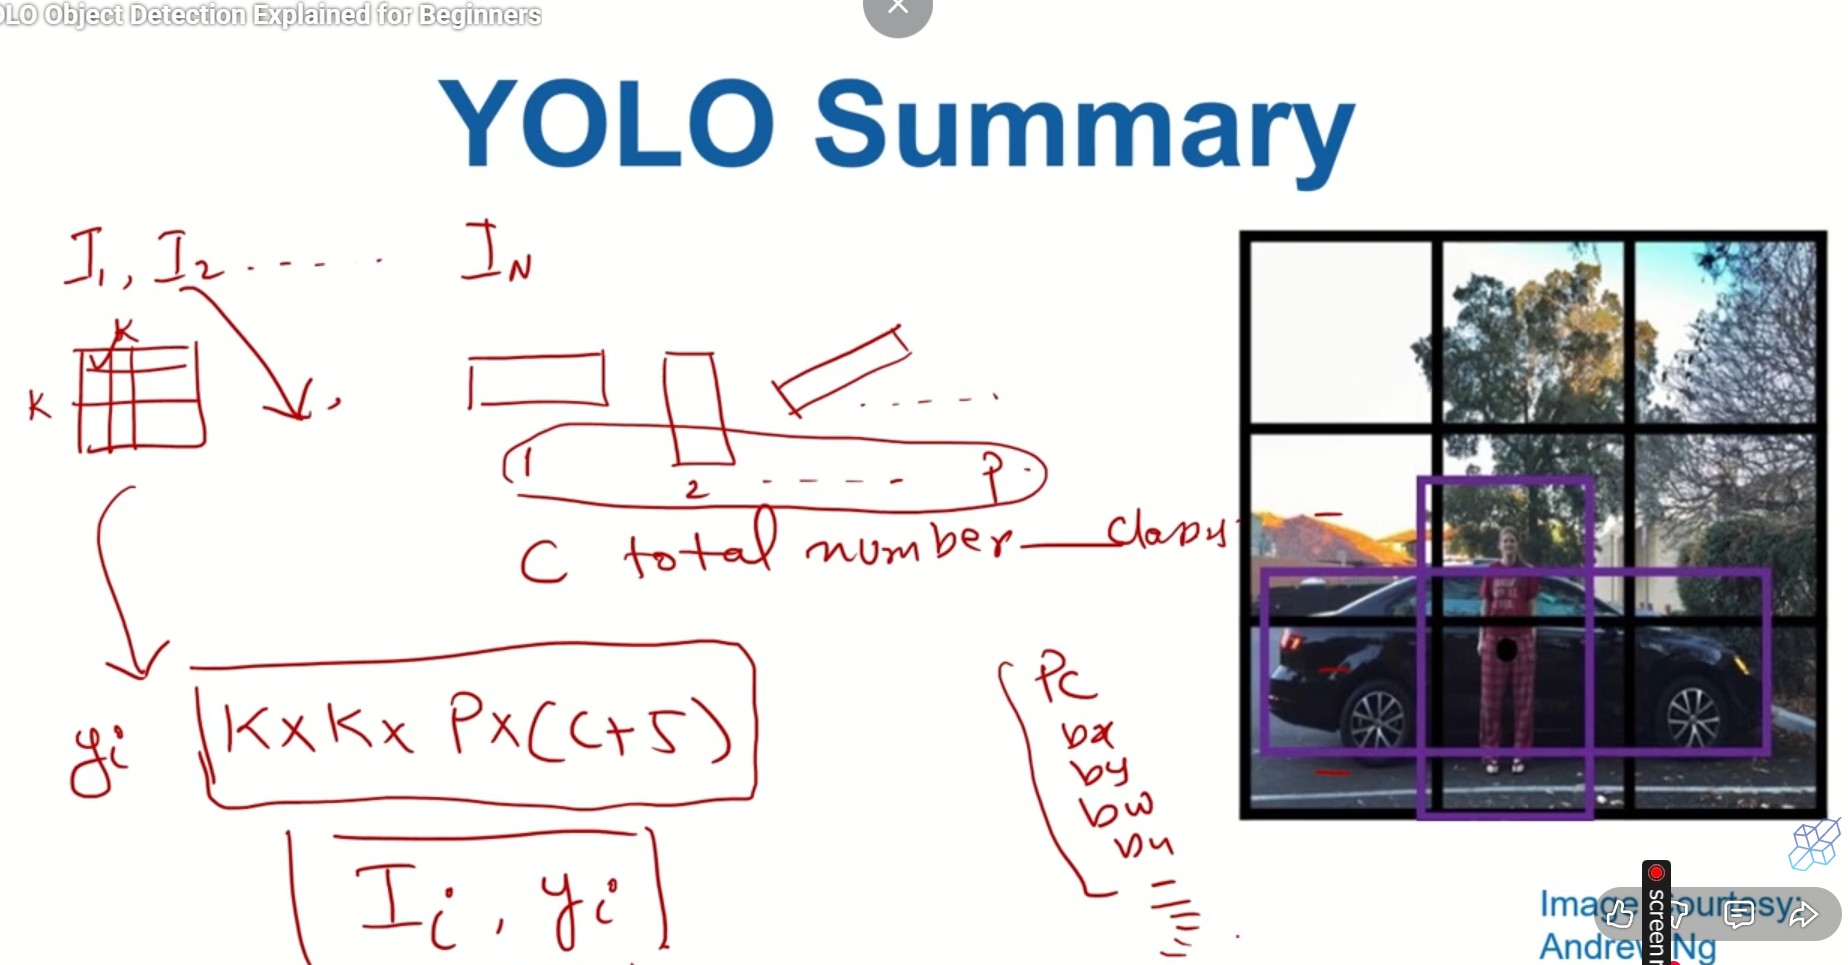 OLO Object Detection Explained for Beginners
YOLO Summary
I1, I2 ----- IN
K
K
1 2 ---- P
C total number classes
yi K x K x P x (C + 5)
Pc
bx
by
bw
bh
Ii, yi
Image Courtesy:
Andrew Ng
screen